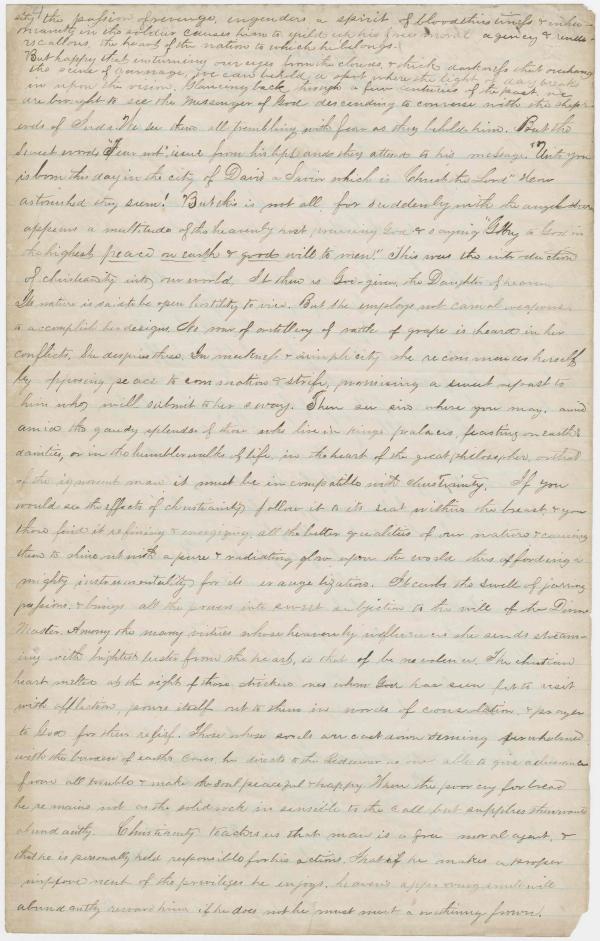 sity the passion of revenge, engenders a spirit of bloodthirstiness & inhu-
manity in the soldier causes him to yield up his free moral agency & rends
rs callous, the heart of the nation to which he belongs.
But happy that in turning our eyes from the clouds, & thick darkness that overhang
the scene of carnage, we can behold a spot where the light of day breaks
in upon the vision. Glancing back through a few centuries of the past, we
are brought to see the Messenger of God descending to converse with the sheph-
erds of Judea. We see them all trembling with fear as they behold him. But the
sweet words "Fear not" issue from his lips and they attend to his message. "Unto you
is born this day in the city of David a Savior which is Christ the Lord" How
astonished they seem! But this is not all, for suddenly with the angel there
appears a multitude of the heavenly host praising God & saying "Glory to God in
the highest, peace on earth & good will to men." This was the introduction
of christianity into our world. It then is God-given, the Daughter of heaven
Its nature is said to be open hostility to vice. But she employs not carnal weapons
to accomplish her designs. No roar of artillery of rattle of grape is heard in her
conflicts. She despises these. In meekness & simplicity she recommends herself
by opposing peace to commotion & strife, promising a sweet repast to
him who will submit to her sway. Then see sin where you may, amid
amid the gaudy splendor of those who live in kings palaces, feasting on earth's
dainties, or in the humbler walks of life, in the heart of the great philosopher, or that
of the ignorant man it must be incompatible with christianity. If you
would see the effects of christianity, follow it to its seat within the breast & you
there find it refining & energizing, all the better qualities of our nature & causing
them to shine out with a pure & radiating glow upon the world thus affording a
mighty instrumentality for its evangelization. It curbs the swell of jarring
passions & brings all the powers into sweet subjection to the will of the Divine
Master. Among the many virtues whose heavenly influences she sends stream-
ing with brightest luster from the heart, is that of benevolence. The christian
heart melted at the sight of those stricken ones whom God has seen fit to visit
with affliction, pours itself out to them in words of consolation & prayer
to God for their relief. Those whose souls are cast down seeming overwhelmed
with the burden of earth's cares, he directs to the Redeemer as one able to give deliverance
from all trouble & make the soul peaceful & happy. When the poor cry for bread
he remains not as the solid rock insensible to the call but supplies their wants
abundantly. Christianity teaches us that man is a free moral agent, &
that he is personally held responsible for his actions. That if he makes a proper
improvement of the privileges he enjoys, heaven's approving smile will
abundantly reward him if he does not he must meet a withering frown.